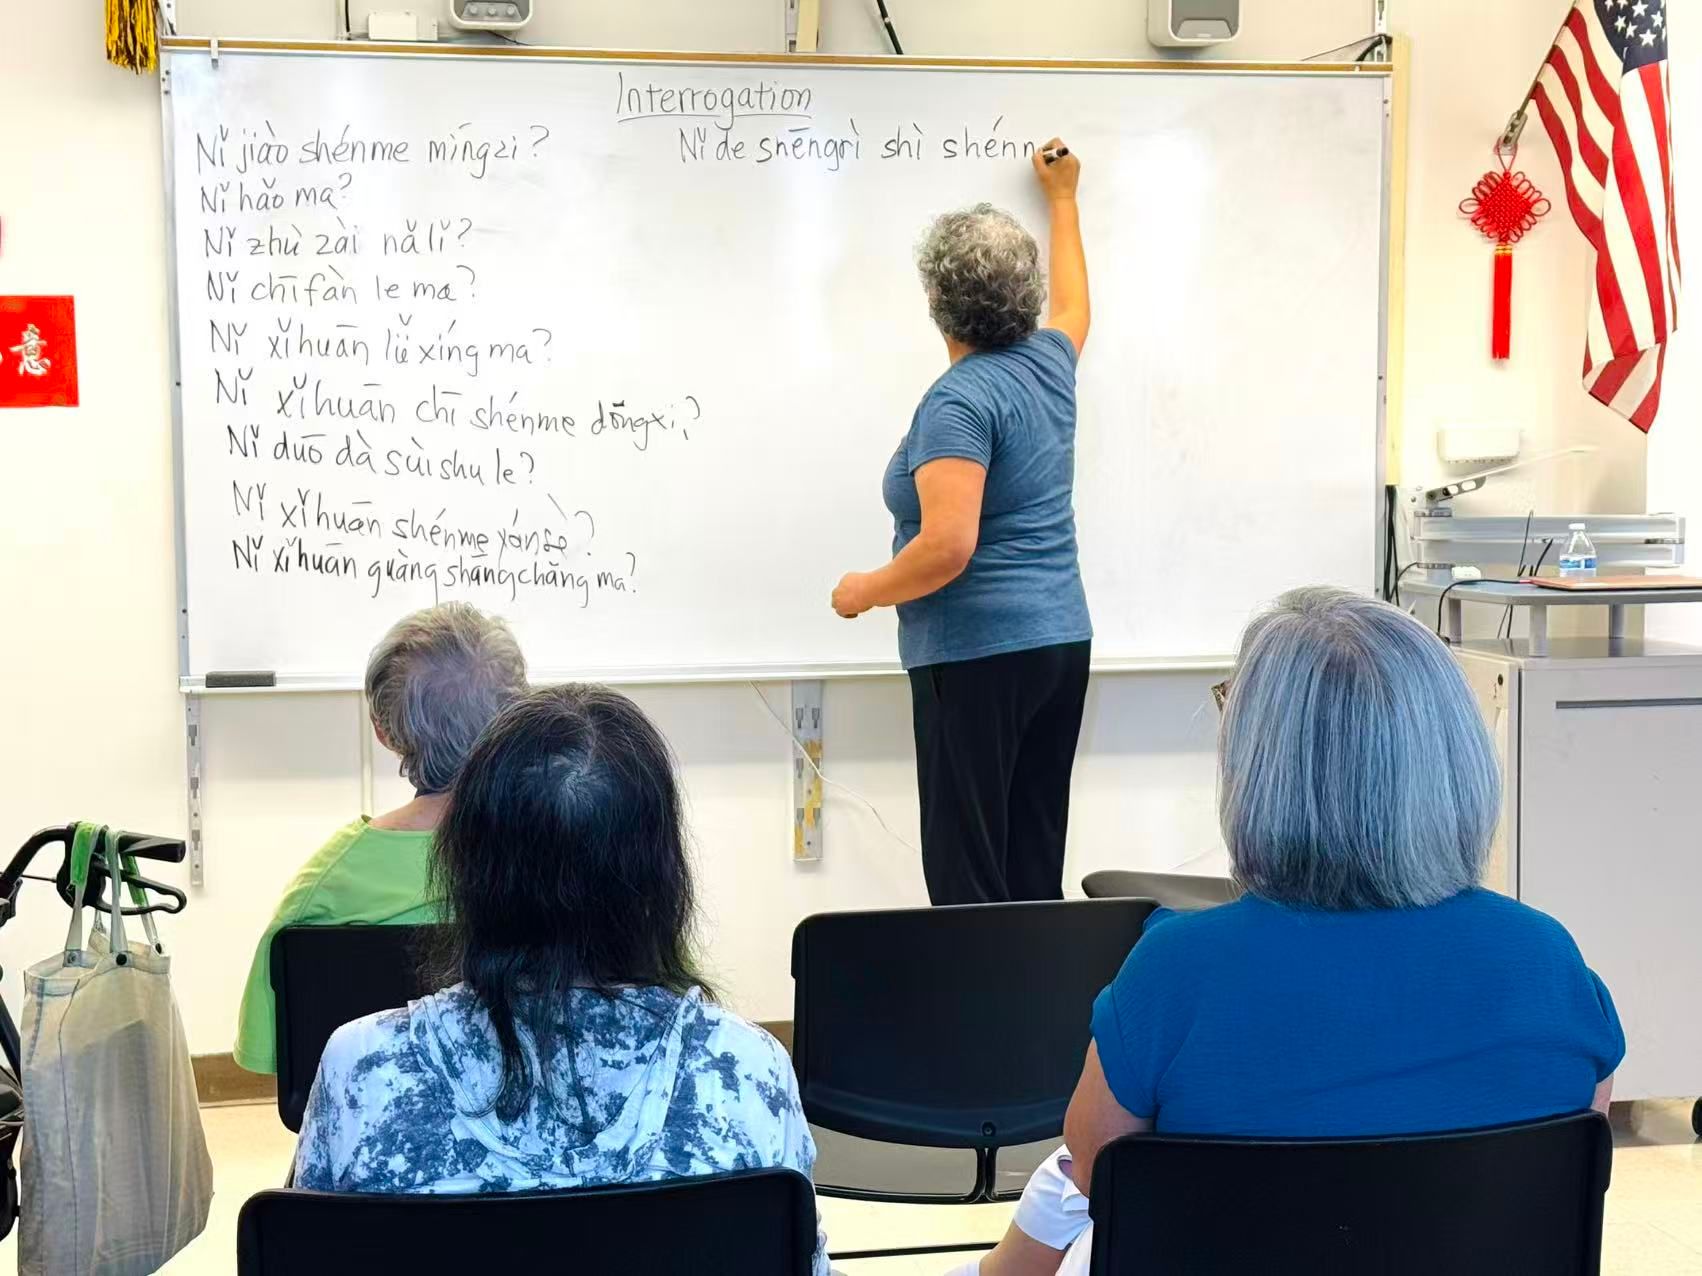 Interrogation
Nǐ jiào shénme míngzi?
Nǐ hǎo ma?
Nǐ zhù zài nǎlǐ?
Nǐ chīfàn le ma?
Nǐ xǐhuān lǚxíng ma?
Nǐ xǐhuān chī shénme dōngxi?
Nǐ duō dà sùi shu le?
Nǐ xǐhuān shénme yánsè?
Nǐ xǐhuān guàng shāngchǎng ma?
Nǐ de shēngrì shì shénm
意